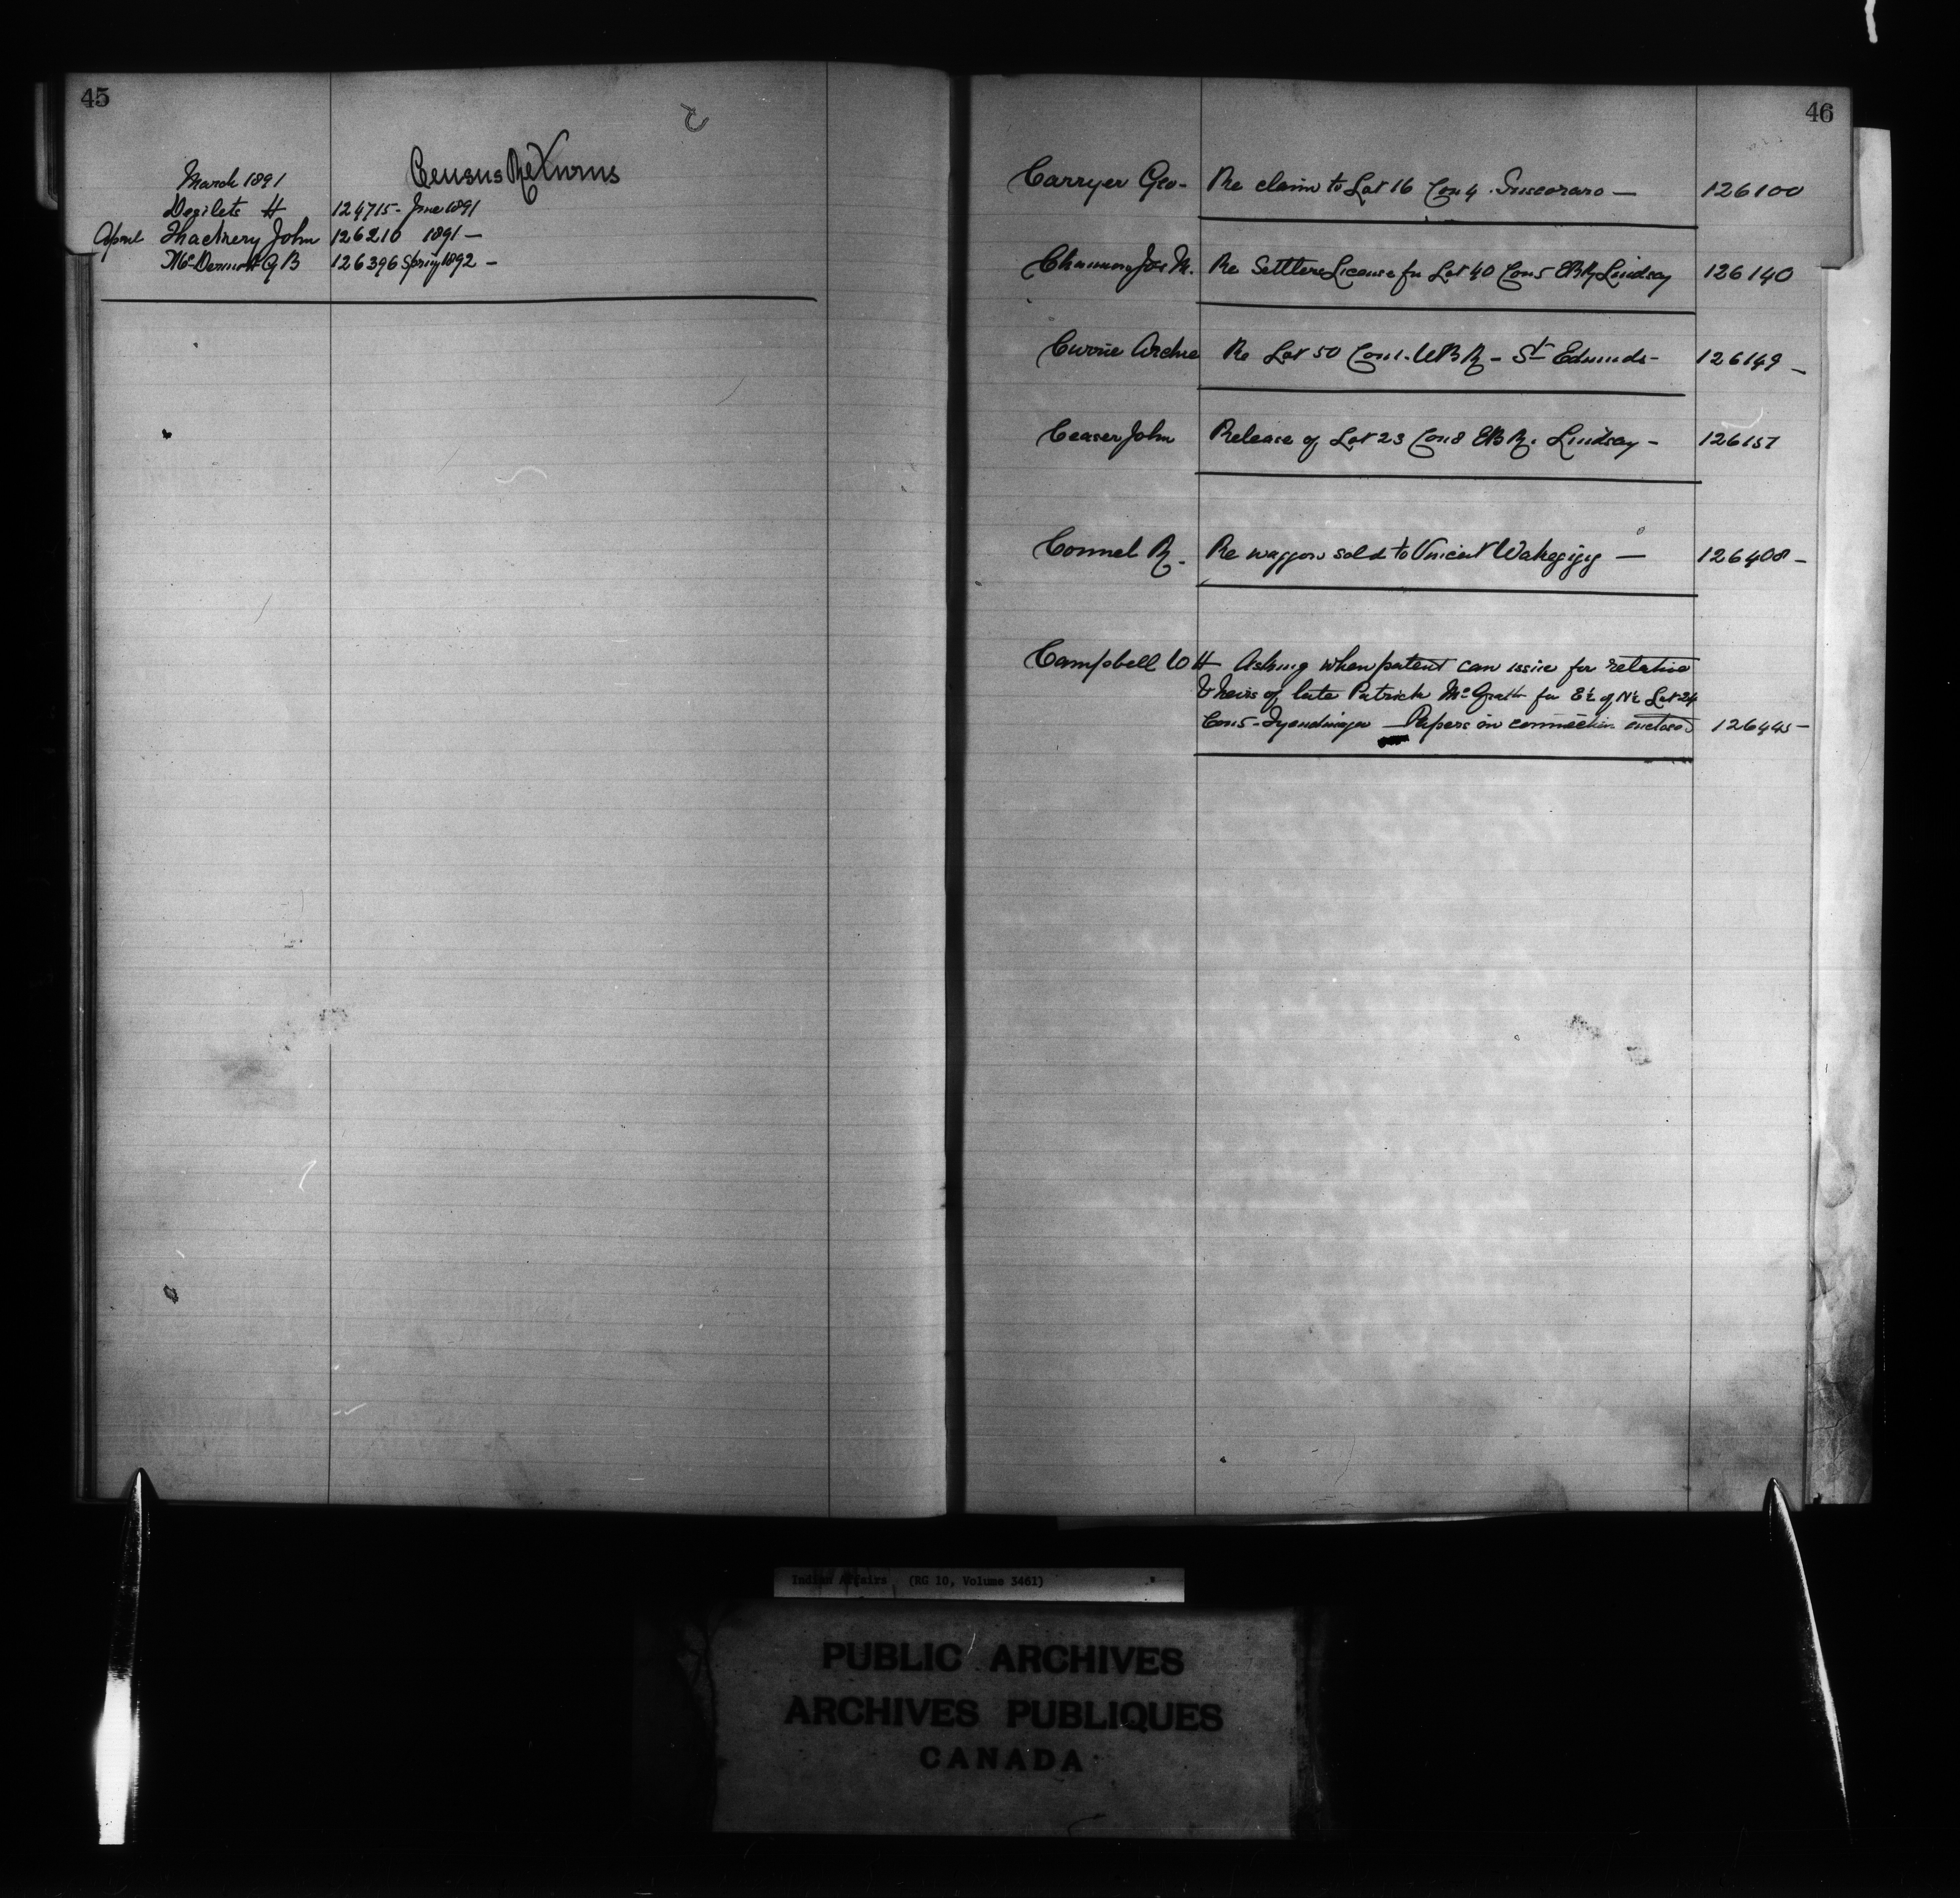 45
C
Census Returns
March 1891
H 124715 - June 1891
April Thackrey John 126210 1891 -
McDermott G B 126396 Spring 1892 -
46
Carryer Geo - Re claim to Lot 16 Con 4 - 126100
Jos M. Re Settlers License for Lot 40 Con 5 EBR Lindsay 126140
Currie Archie Re Lot 50 Con 1. WBR - St Edmunds - 126149 -
Ceaser John Release of Lot 23 Con 8 EBR. Lindsay - 126157
Connel R. Re waggon sold to Vincent Wakegijig - 126408 -
Campbell W H Asking when patent can issue for relative
& heirs of late Patrick McGrath for E½ of N½ Lot 24
Con 5 - Tyendinaga - Papers in connection enclosed 126445 -
Indian Affairs (RG 10, Volume 3461)
PUBLIC ARCHIVES
ARCHIVES PUBLIQUES
CANADA